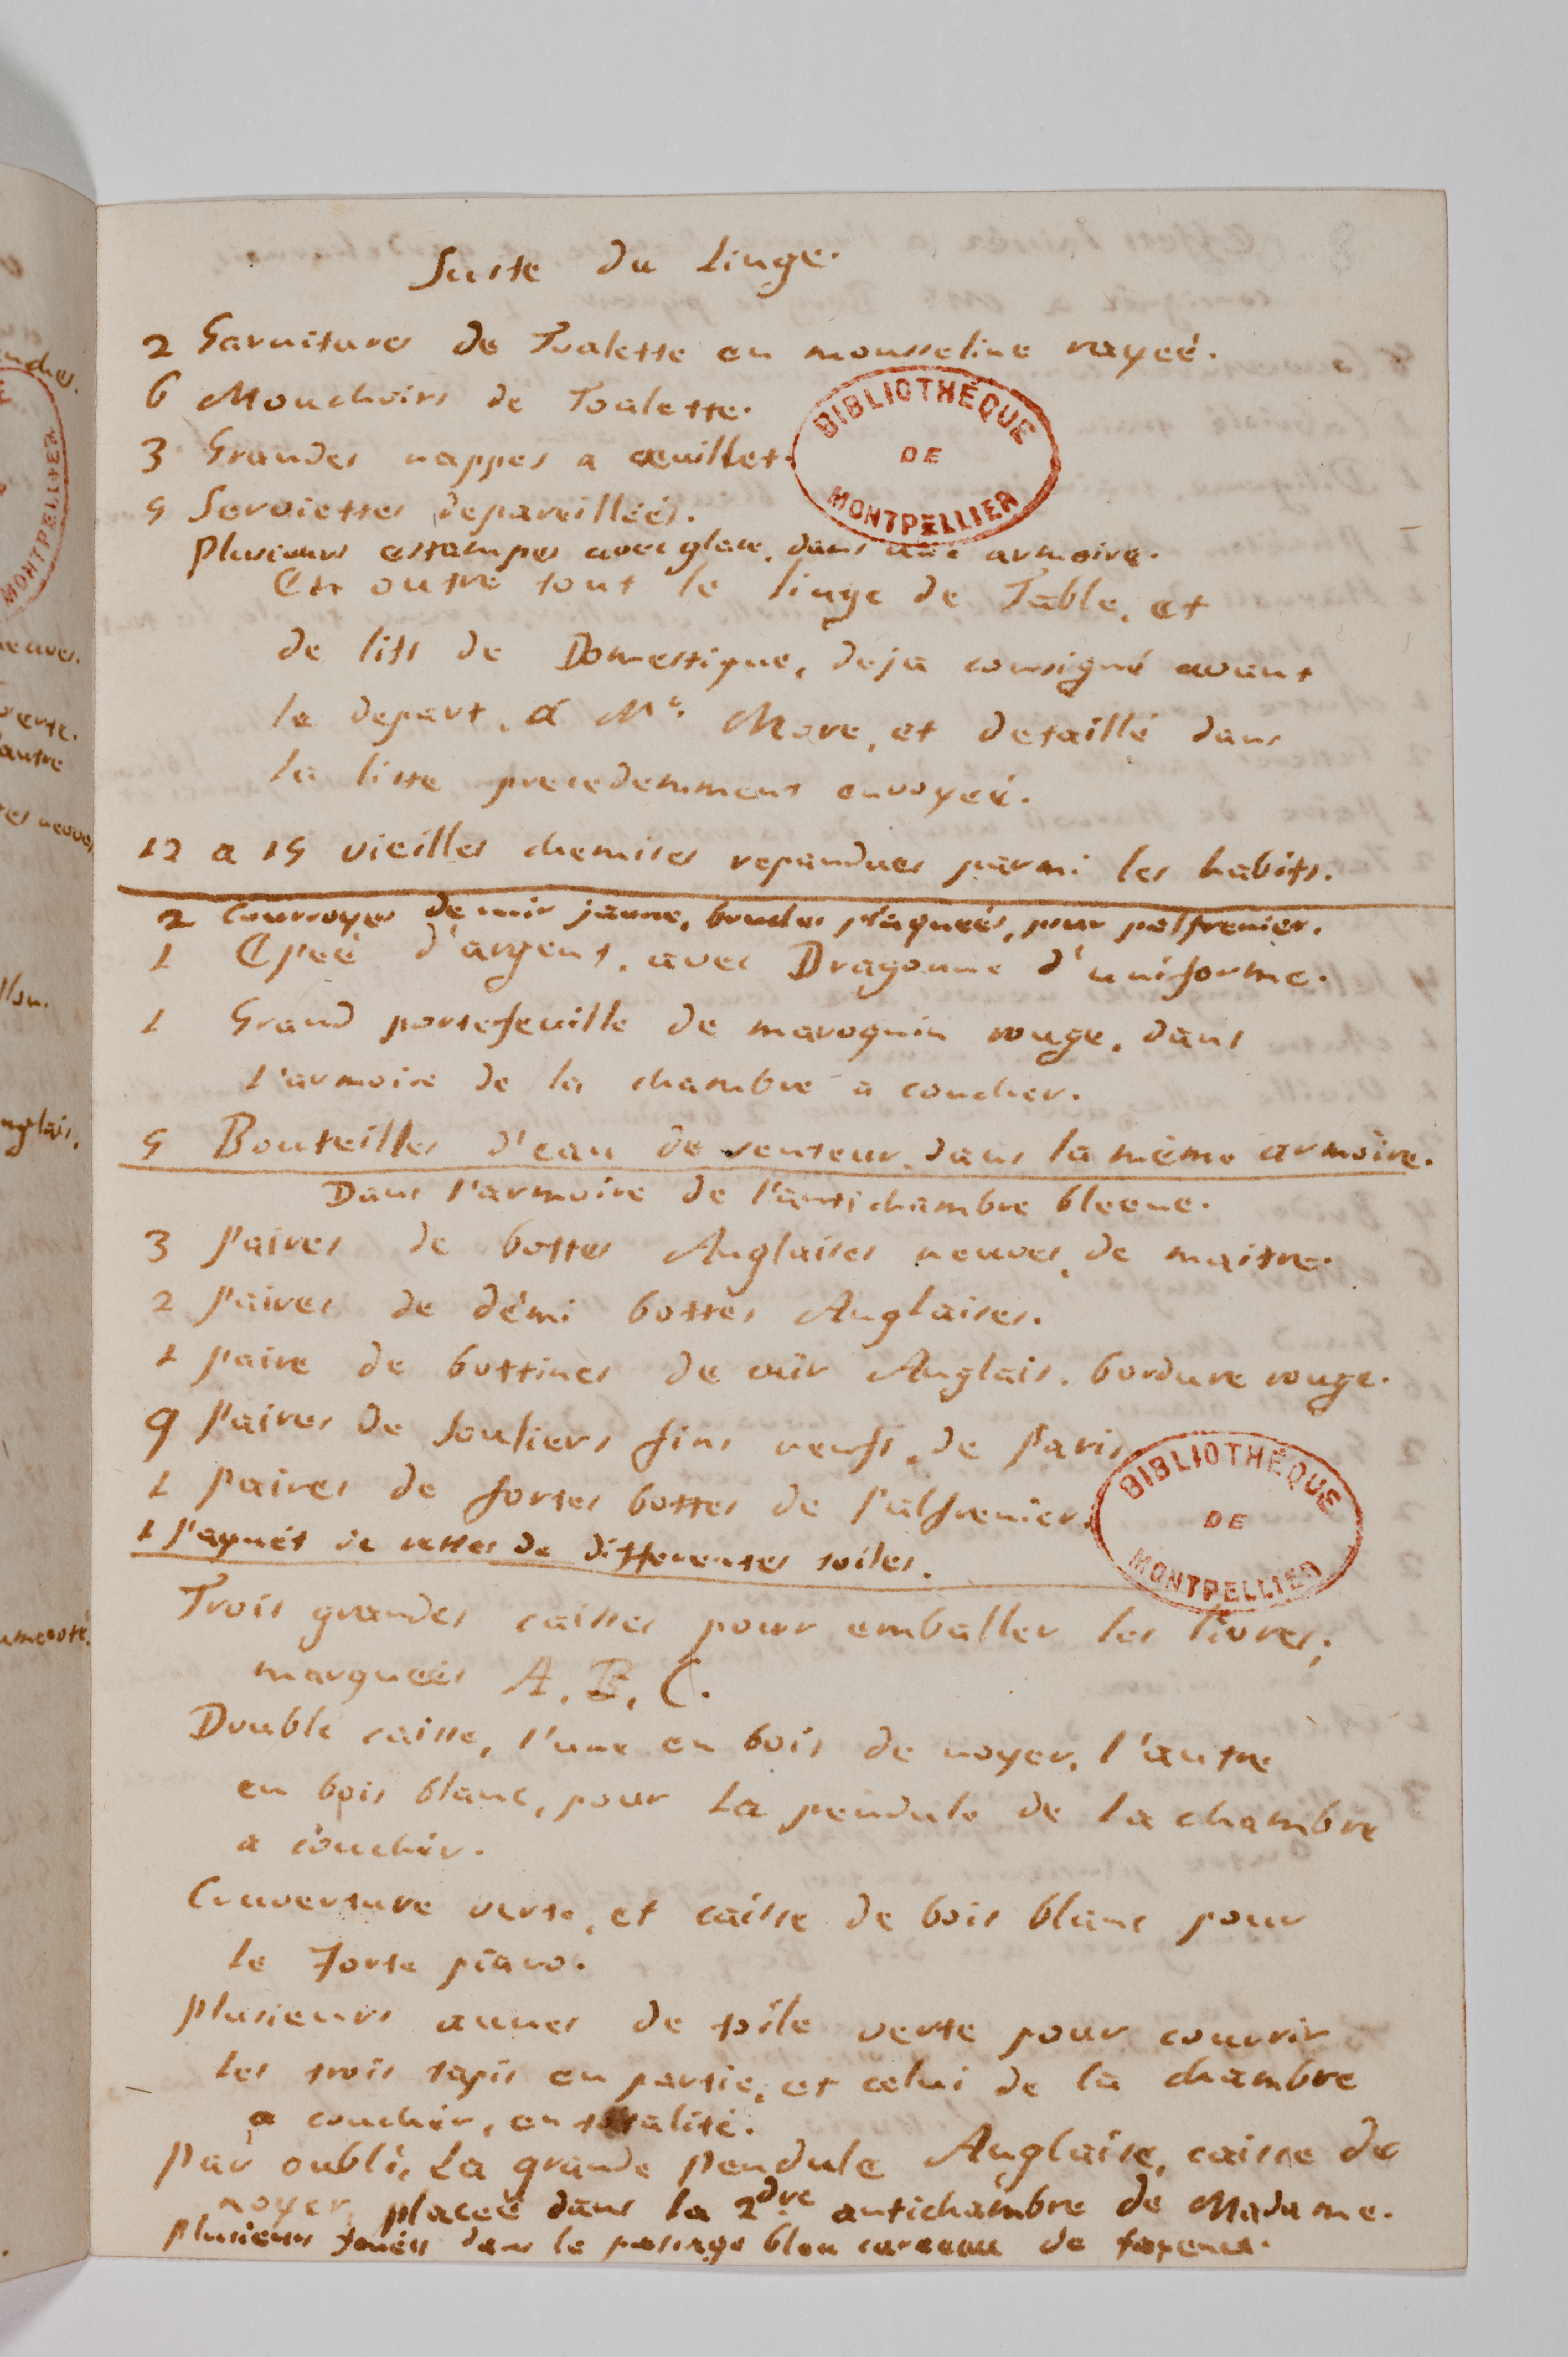 Suite du Linge.
2 Garnitures de Toalette en mousseline rayeé.
6 Mouchoirs de Toalette.
3 Grandes nappes a œuillet.
5 Serviettes depareilleés.
Plusieurs estampes avec glace, dans une armoire.
En outre tout le linge de Table, et
de lits de Domestique, deja consigné avant
le depart, á Mr. More, et detaillé dans
la liste precedemment envoyeé.
12 a 15 vieilles chemises repandues parmi les habits.
2 Courroyes de cuir jaune, boucles plaqueés, pour palfrenier.
1 Epeé d'argent, avec Dragonne d'uniforme.
1 Grand portefeuille de maroquin rouge, dans
l'armoire de la chambre a coucher.
5 Bouteilles d'eau de senteur, dans la même armoire.
Dans l'armoire de l'antichambre bleeue.
3 Paires de bottes Anglaises neuves, de maitre.
2 Paires de démi bottes Anglaises.
1 Paire de bottines de cuir Anglais, bordure rouge.
9 Paires de souliers fins neufs, de Paris.
1 Paires de fortes bottes de Palfrenier.
1 Paquét de restes de differentes toiles.
Trois grandes caisses pour emballer les livres,
marqueés A, B, C.
Double caisse, l'une en bois de noyer, l'autre
en bois blanc, pour La pendule de la chambre
a coucher.
Couverture verte, et caisse de bois blanc pour
le Forte piano.
Plusieurs aunes de toile verte pour couvrir
les trois tapis en partie, et celui de la chambre
a coucher, en totalité.
Par oubli, La grande Pendule Anglaise, caisse de
noyer, placeé dans la 2dre antichambre de Madame.
Plusieurs dans le passage bleu carreau de fayence.
BIBLIOTHÈQUE
DE
MONTPELLIER
BIBLIOTHÈQUE
DE
MONTPELLIER
MONTPELLIER